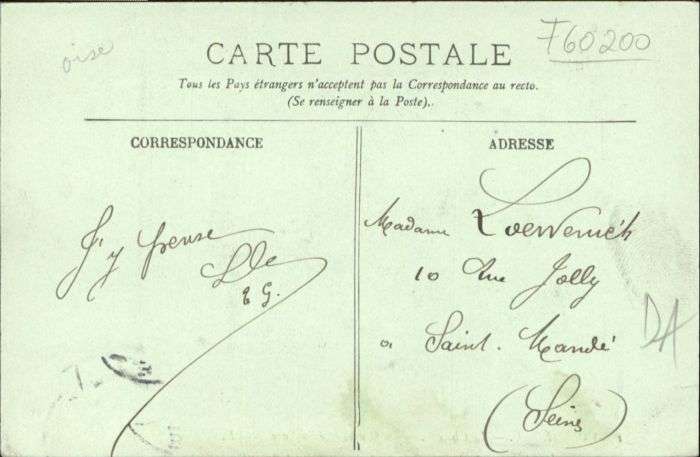 oise
F60200
CARTE POSTALE
Tous les Pays étrangers n'acceptent pas la Correspondance au recto.
(Se renseigner à la Poste)..
CORRESPONDANCE
J'y pense
E G.
ADRESSE
Madame
10 Rue Jolly
a Saint. Mandé
(Seine)
DA